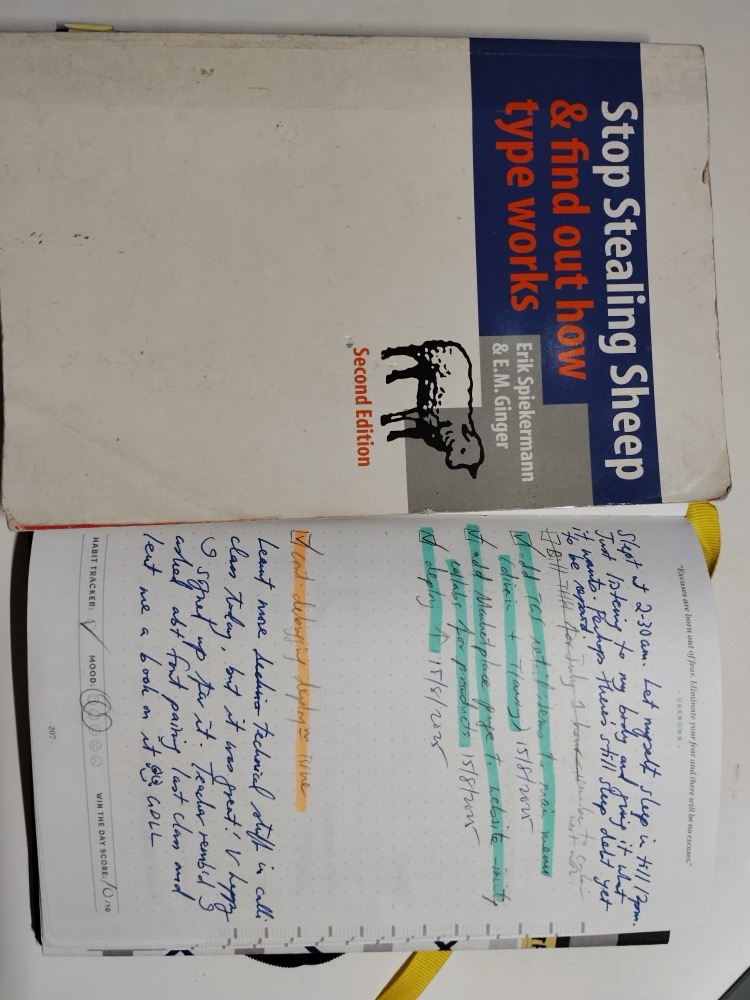 Stop Stealing Sheep
& find out how
type works
Erik Spiekermann
& E.M. Ginger
Second Edition
"Excuses are born out of fear. Eliminate your fear and there will be no excuses."
- UNKNOWN -
Slept at 2-30am. Let myself sleep in till 12pm.
Just listening to my body and giving it what
it wants. Perhaps there's still sleep debt yet
to be repaid
add retail items to main menu
15/8/2025
add Marketplace page to website
for products 15/8/2025
deploy 15/8/2025
cont. debugging issue
Learnt more technical stuff in calli
class today, but it was great! V happy
I signed up for it. Teacher remb'd I
asked abt font pairing last class and
lent me a book on it LOLL
HABIT TRACKER: MOOD: WIN THE DAY SCORE: 10/10
207